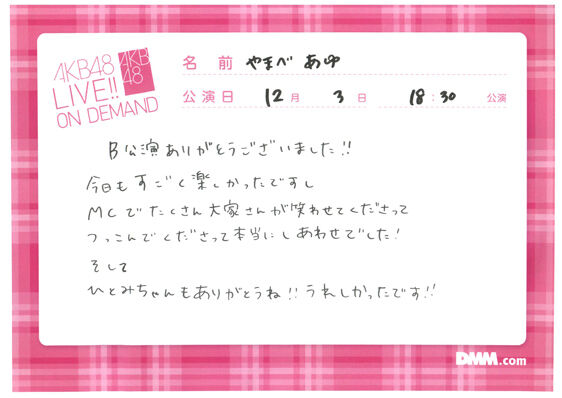 AKB48
LIVE!!
ON DEMAND
AKB
48
名 前 やまべ あゆ
公演日 12月 3日 18:30 公演
B公演ありがとうございました!!
今日もすごく楽しかったですし
MCでたくさん大家さんが笑わせてくださって
つっこんでくださって本当にしあわせでした!
そして
ひとみちゃんもありがとうね!! うれしかったです!!
DMM.com